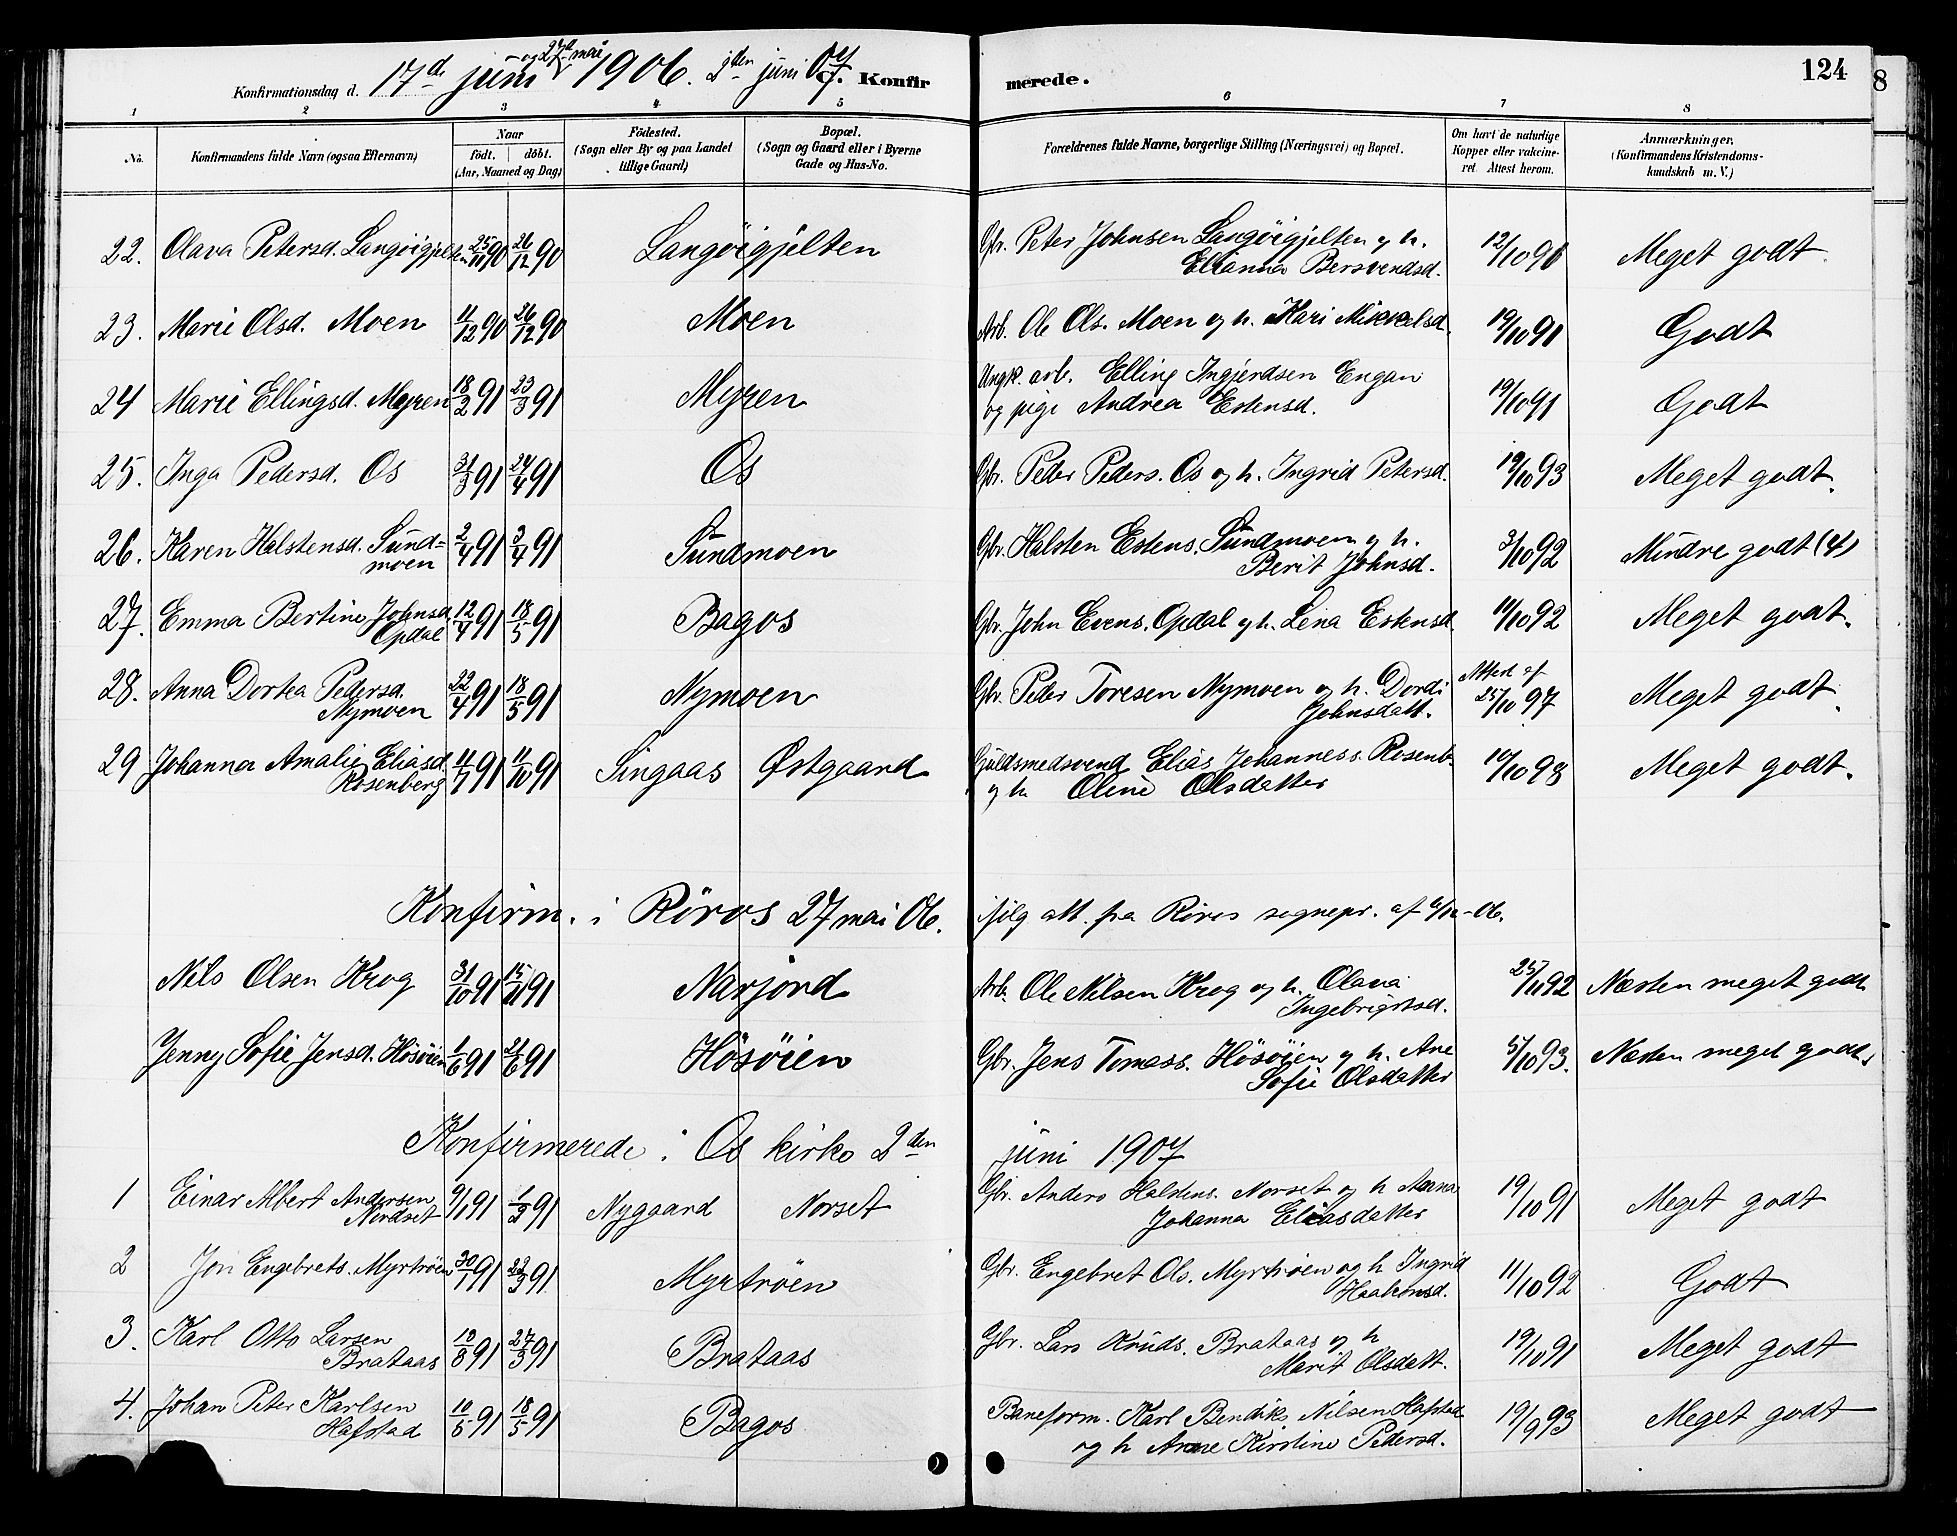 Konfirmationsdag d. 17d juni og 27d mai 1906. 2den juni 07 C. Konfirmerede. 124
8
1 2 3 4 5 6 7 8
No. Konfirmandens fulde Navn (ogsaa Efternavn) Naar födt. döbt. (Aar, Maaned og Dag) Födested. (Sogn eller By og paa Landet tillige Gaard) Bopæl. (Sogn og Gaard eller i Byerne Gade og Hus-No. Forældrenes fulde Navne, borgerlige Stilling (Næringsvei) og Bopæl. Om havt de naturlige Kopper eller vakcineret Attest herom. Anmærkninger. (Konfirmandens Kristendomskundskab m. V.)
22. Olava Petersd. Langöigjelten 25/11 90 26/12 90 Langöigjelten Gbr. Peter Johnsen Langöigjelten og h. Elianna Bersvendsd. 12/10 90 Meget godt.
23. Marie Olsd. Moen 11/12 90 26/12 90 Moen Arb. Ole Ols. Moen og h. Kari Mikkelsd. 19/10 91 Godt
24 Marie Ellingsd. Myren 18/2 91 23/3 91 Myren Ungk. arb. Elling Ingjerdsen Engan og pige Andrea Estensd. 19/10 91 Godt
25. Inga Pedersd. Os 31/3 91 24/4 91 Os Gbr. Peder Peders. Os og h. Ingrid Petersd. 19/10 93 Meget godt.
26. Karen Halstensd. Sundmoen 2/4 91 3/4 91 Sundmoen Gbr. Halsten Estens. Sundmoen og h. Berit Johnsd. 3/10 92 Mindre godt (4)
27. Emma Bertine Johnsd. Opdal 12/4 91 18/5 91 Bagos Gbr. John Evens. Opdal og h. Lena Estensd. 11/10 92 Meget godt.
28. Anna Dortea Pedersd. Nymoen 22/4 91 18/5 91 Nymoen Gbr. Peder Toresen Nymoen og h. Dordi Johnsdatt. Attest af 25/10 97 Meget godt.
29 Johanna Amalie Eliasd. Rosenberg 11/7 91 11/10 91 Singaas Østgaard Guldsmedsvend Elias Johanness. Rosenb. og h. Oline Olsdatter 10/10 98 Meget godt.
Konfirm. i Röros 27 mai 06. ifölg att. fra Röros sognepr. af
Nils Olsen Krog 31/10 91 15/11 91 Narjord Arb. Ole Nilsen Krog og h. Olava Ingebrigtsd. 25/11 92 Næsten meget godt
Jenny Sofie Jensd. Hösöien 1/6 91 21/6 91 Hösöien Gbr. Jens Tomass. Hösöien og h. Ane Sofie Olsdatter 5/10 93. Næsten meget godt.
Konfirmerede i Os kirke 2den juni 1907
1 Einar Albert Andersen Nordset 9/1 91 1/2 91 Nygaard Norset Gbr. Anders Halstens. Norset og h Anna Johanna Eliasdatter 19/10 91 Meget godt
2 Jon Engebrets. Myrtröen 30/1 91 22/3 91 Myrtröen Gbr. Engebret Ols. Myrtröen og h Ingrid Haakonsd. 11/10 92 Godt
3. Karl Otto Larsen Brataas 10/3 91 27/3 91 Brataas Gbr. Lars Knuds. Brataas og h Marit Olsdatt. 19/10 91 Meget godt
4. Johan Peter Karlsen Hafstad 10/5 91 18/5 91 Bagos Baneform. Karl Bendiks Nilsen Hafstad og h Anne Kirstine Pedersd. 19/9 93 Meget godt